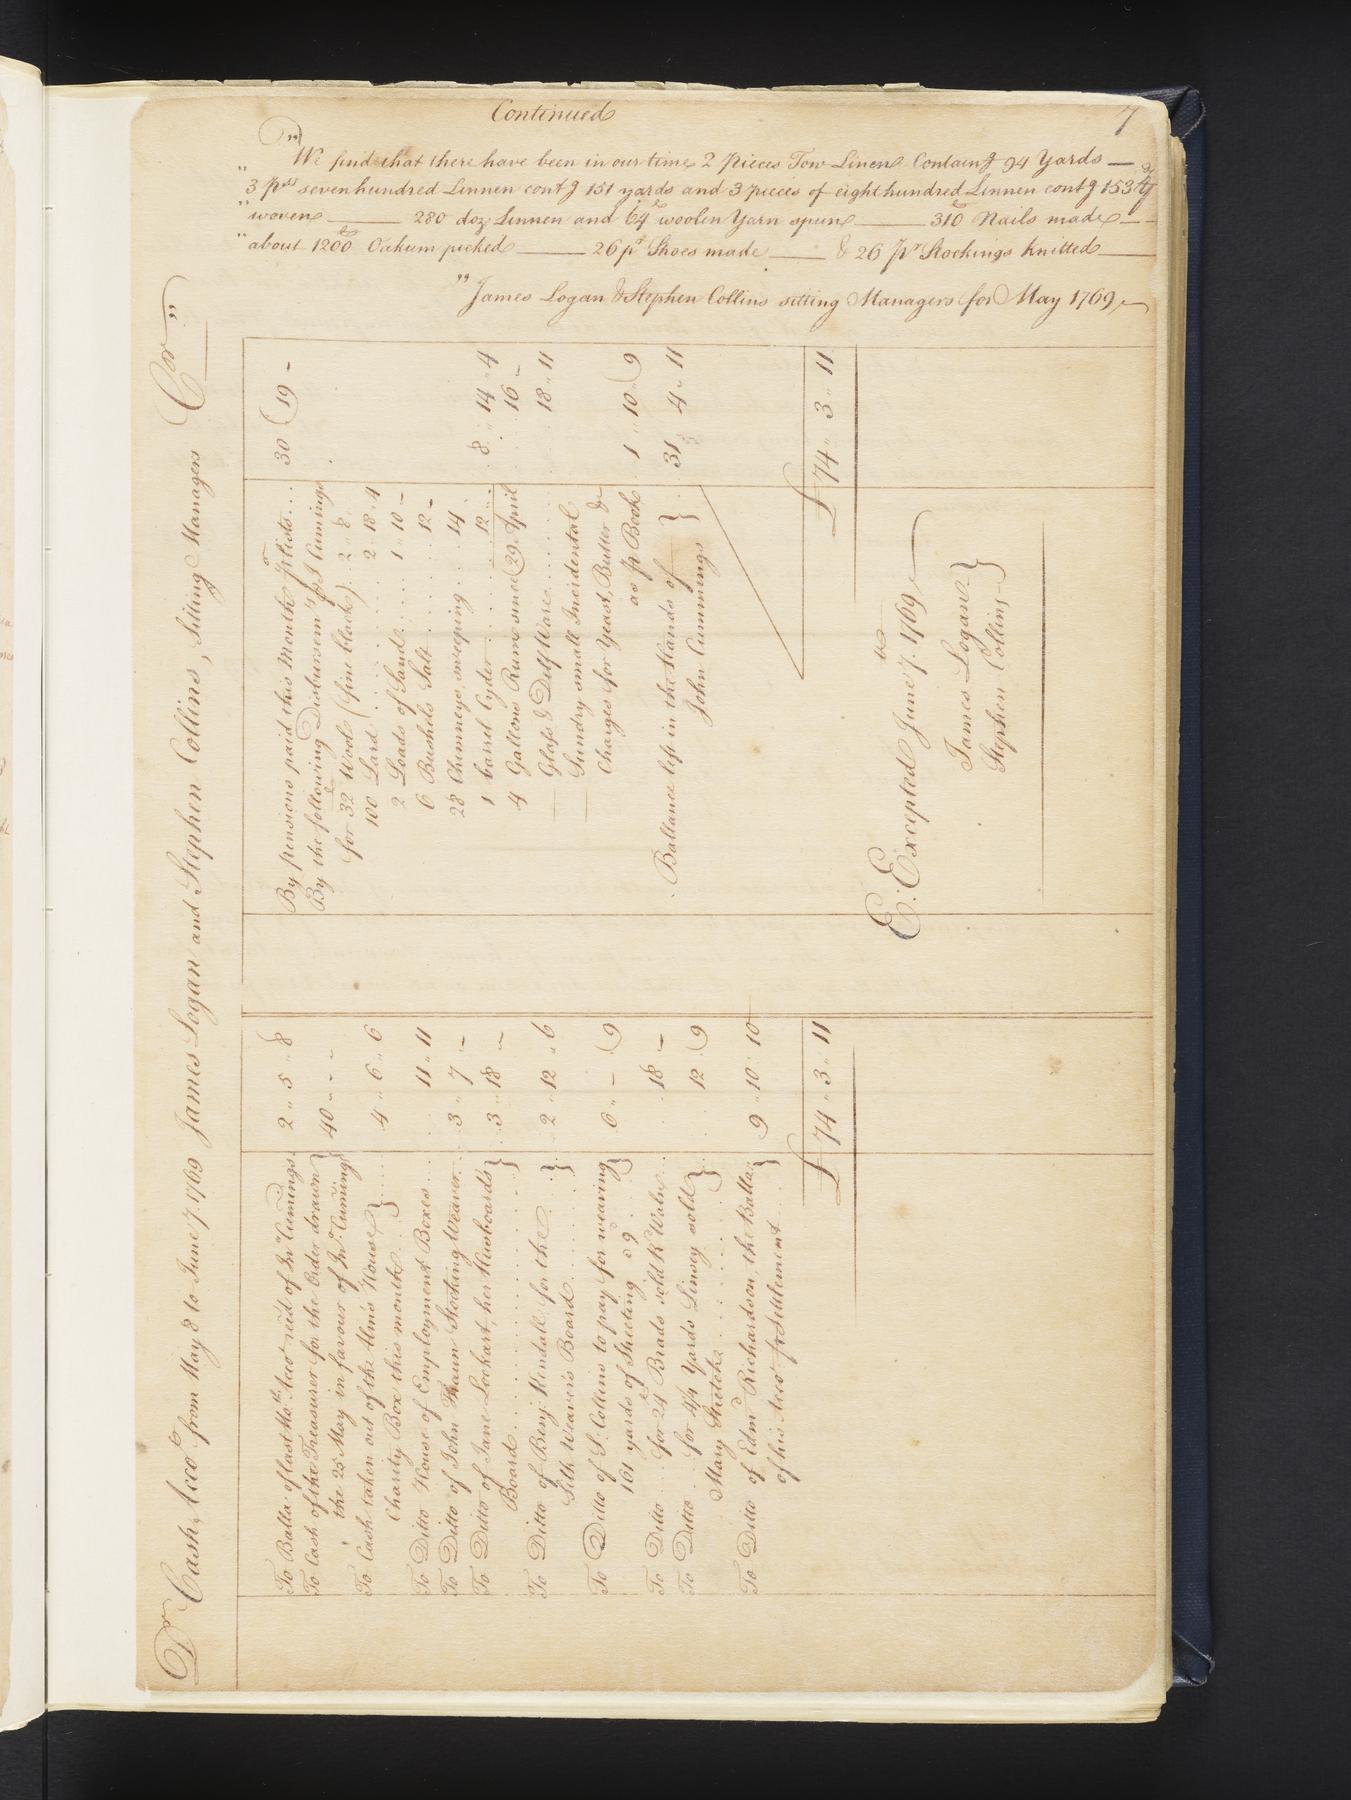 Continued 7
"We find that there have been in our time 2 pieces Tow Linen Contain.g 94 Yards —
" 3 p.ces sevenhundred Linnen cont.g 151 yards and 3 pieces of eight hundred Linnen cont.g 153 y.ds
" wove — 280 doz Linnen and 64 lb woolen Yarn spun — 310 lb Nails made —
" about 1200 lb Oakum picked — 26 p.r Shoes made — & 26 p.r Stockings knitted —
" James Logan & Stephen Collins sitting Managers for May 1769
D.r Cash, Acco.t from May 8 to June 7. 1769 James Logan and Stephen Collins, Sitting Managers C.r "
To Balla. of last Mo.ths Acco.t rec'd of J.no Cumings. 2 " 5 " 8
To Cash of the Treasurer for the Order drawn }
the 25 May in favour of J.no Cuming } 40 " - " -
To Cash taken out of the Alms House }
Charity Box this month } 4 " 6 " 6
To Ditto House of Employment Boxes 11 " 11
To Ditto of John Thaun Stocking Weaver 3 " 7 " -
To Ditto of Jane Lockart, her Husboards }
Board } 3 " 18 " -
To Ditto of Benj. Kendall for the }
Silk Weavers Board } 2 " 12 " 6
To Ditto of S. Collins to pay for weaving }
161 yards of Sheeting @ 9 } 6 " - " 9
To Ditto for 24 lb Brads sold R Waln 18 " -
To Ditto for 4/4 Yards Linsey sold }
Mary Stretch } 12 " 9
To Ditto of Edm.d Richardson, the Balla. }
of his Acco.t p.r Settlement } 9 " 10 " 10
£ 74 " 3 " 11
By pensions paid this Month p.r lists 30 " 19 -
By the following Disbursem.ts p.r J Cumings
for 32 lb Wool (fine black) 2 " 8 " -
100 Lard 2 " 18 " 4
2 Loads of Sand 1 " 10 -
6 Bushels Salt 12 -
28 Chimneys, sweeping 14
1 barrel Cyder 12 8 " 14 " 4
4 Gallons Rum since 29 April 16 -
— Glass & Delf Ware 18 " 11
— Sundry small Incidental
Charges for Yeast, Butter &c
as p.r Book 1 " 10 " 9
Ballance left in the Hands of }
John Cummings } 31 " 4 " 11
£ 74 " 3 " 11
E. Excepted June 7.th 1769
James Logan }
Stephen Collins }